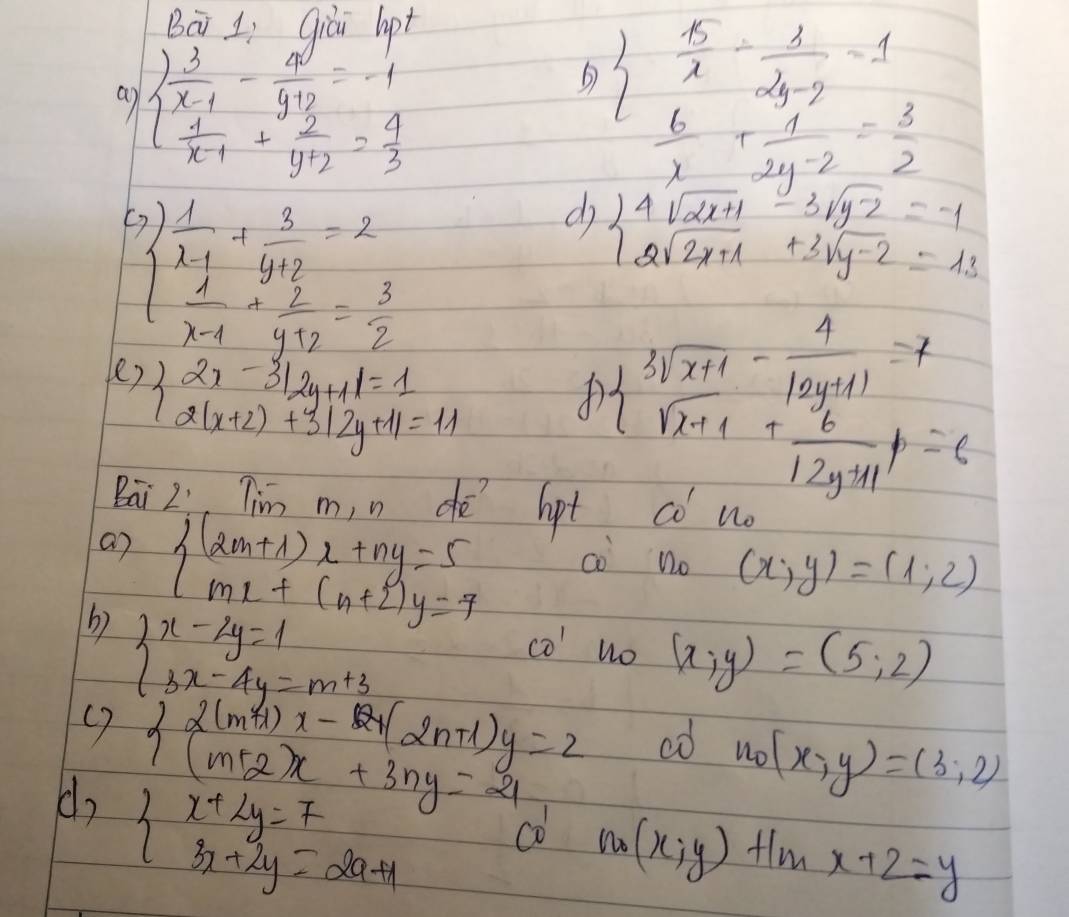 Bài 1: Giải hpt
a) { 3/(x-1) - 4/(y+2) = -1
1/(x-1) + 2/(y+2) = 4/3
b) { 15/x - 3/(2y-2) = 1
6/x + 1/(2y-2) = 3/2
c) { 1/(x-1) + 3/(y+2) = 2
1/(x-1) + 2/(y+2) = 3/2
d) { 4√(2x+1) - 3√(y-2) = -1
2√(2x+1) + 3√(y-2) = 13
e) { 2x - 3|2y+1| = 1
2(x+2) + 3|2y+1| = 11
f) { 3√(x+1) - 4/|2y+1| = 7
√(x+1) + 6/|2y+1| = 6
Bài 2: Tìm m, n để hpt có no
a) { (2m+1)x + ny = 5 có no (x;y) = (1;2)
mx + (n+2)y = 7
b) { x - 2y = 1 có no (x;y) = (5;2)
3x - 4y = m+3
c) { 2(m+1)x - (2n+1)y = 2 có no (x;y) = (3;2)
(m+2)x + 3ny = 21
d) { x + 2y = 7 có no (x;y) t/m x+2=y
3x + 2y = 2a+1